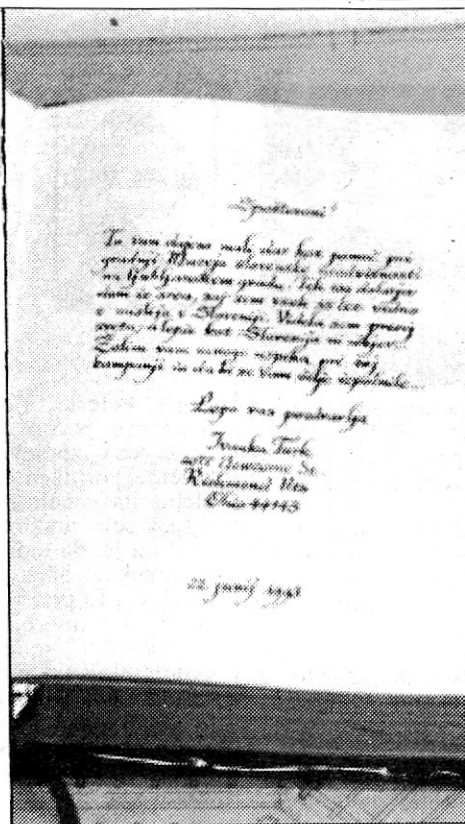 Spoštovani!
Tu vam dajem mali dar kot pomoč pri
gradnji Muzeja slovenske
na ljubljanskem gradu. Tek
dam iz srca, saj sem vsak
z mislijo v Sloveniji. Videla sem precej
sveta, a lepše kot Slovenija ni
Želim vam mnogo uspeha pri tej
kampanji in da bi se vam želje izpolnile...
Lepo vas pozdravlja
Ivanka Turk
Richmond Hts
Ohio 44143
22. junij